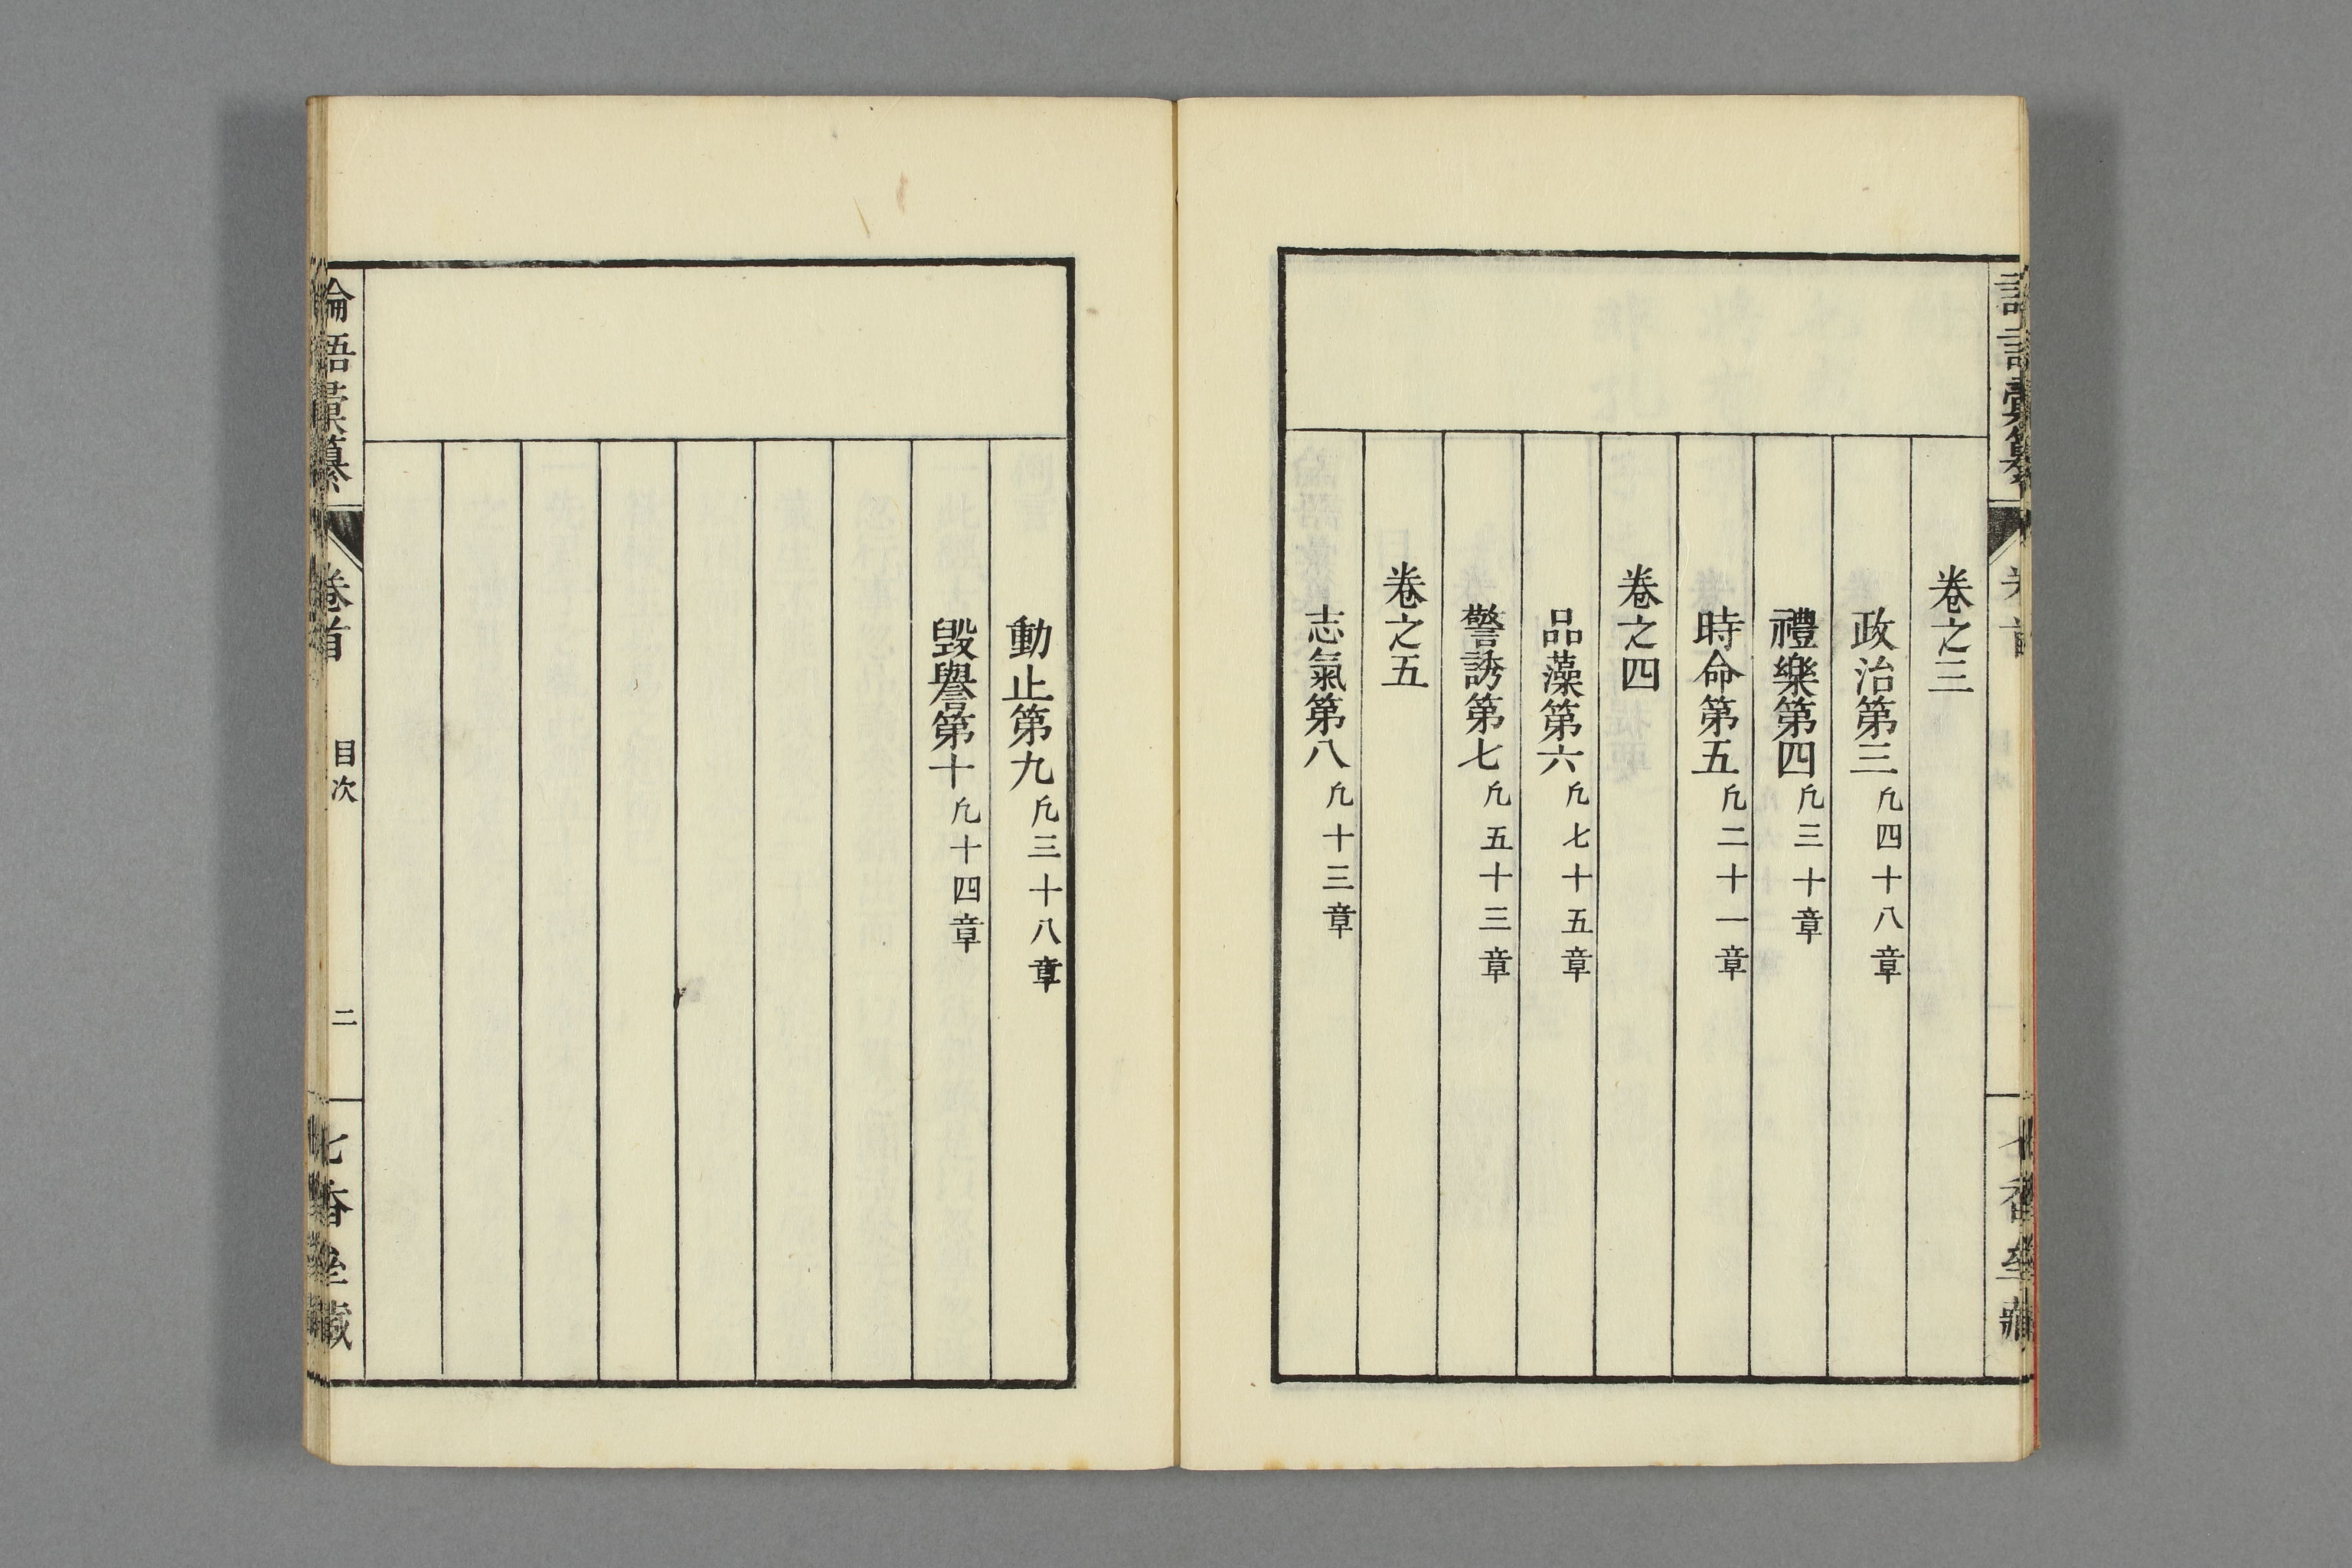 卷之三
政治第三凢四十八章
禮樂第四凢三十章
時命第五凢二十一章
卷之四
品藻第六凢七十五章
警誘第七凢五十三章
卷之五
志氣第八凢十三章
動止第九凢三十八章
毀譽第十凢十四章
論語彙纂
卷首
目次
二
七香坐藏